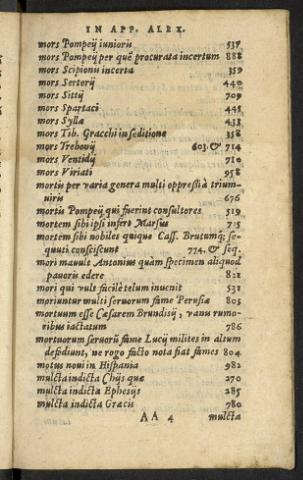 IN APP. ALEX.
mors Pompeij iunioris 537
mors Pompeij per quē procurata incertum 888
mors Scipionis incerta 359
mors Sertorij 440
mors Sittij 709
mors Spartaci 445
mors Syllæ 433
mors Tib. Gracchi in seditione 358
mors Trebonij 603. & 714
mors Ventidij 710
mors Viriati 958
mortis per varia genera multi oppressi à trium-
uiris 676
mortis Pompeij qui fuerint consultores 519
mortem sibi ipsi infert Marsus 715
mortem sibi nobiles quique Cass. Brutumq; se-
quuti consciscunt 774. & seq.
mori mauult Antonius quàm specimen aliquod
pauoris edere 821
mori qui vult facilè telum inuenit 531
moriuntur multi seruorum fame Perusiæ 803
mortuum esse Cæsarem Brundisij, vanu rumo-
ribus iactatum 786
mortuorum seruorū fame Lucij milites in altum
defodiunt, ne rogo facto nota fiat fames 804
motus noui in Hispania 982
mulcta indicta Chijs quæ 270
mulcta indicta Ephesijs 285
mulcta indicta Græcis 780
AA 4 mulcta